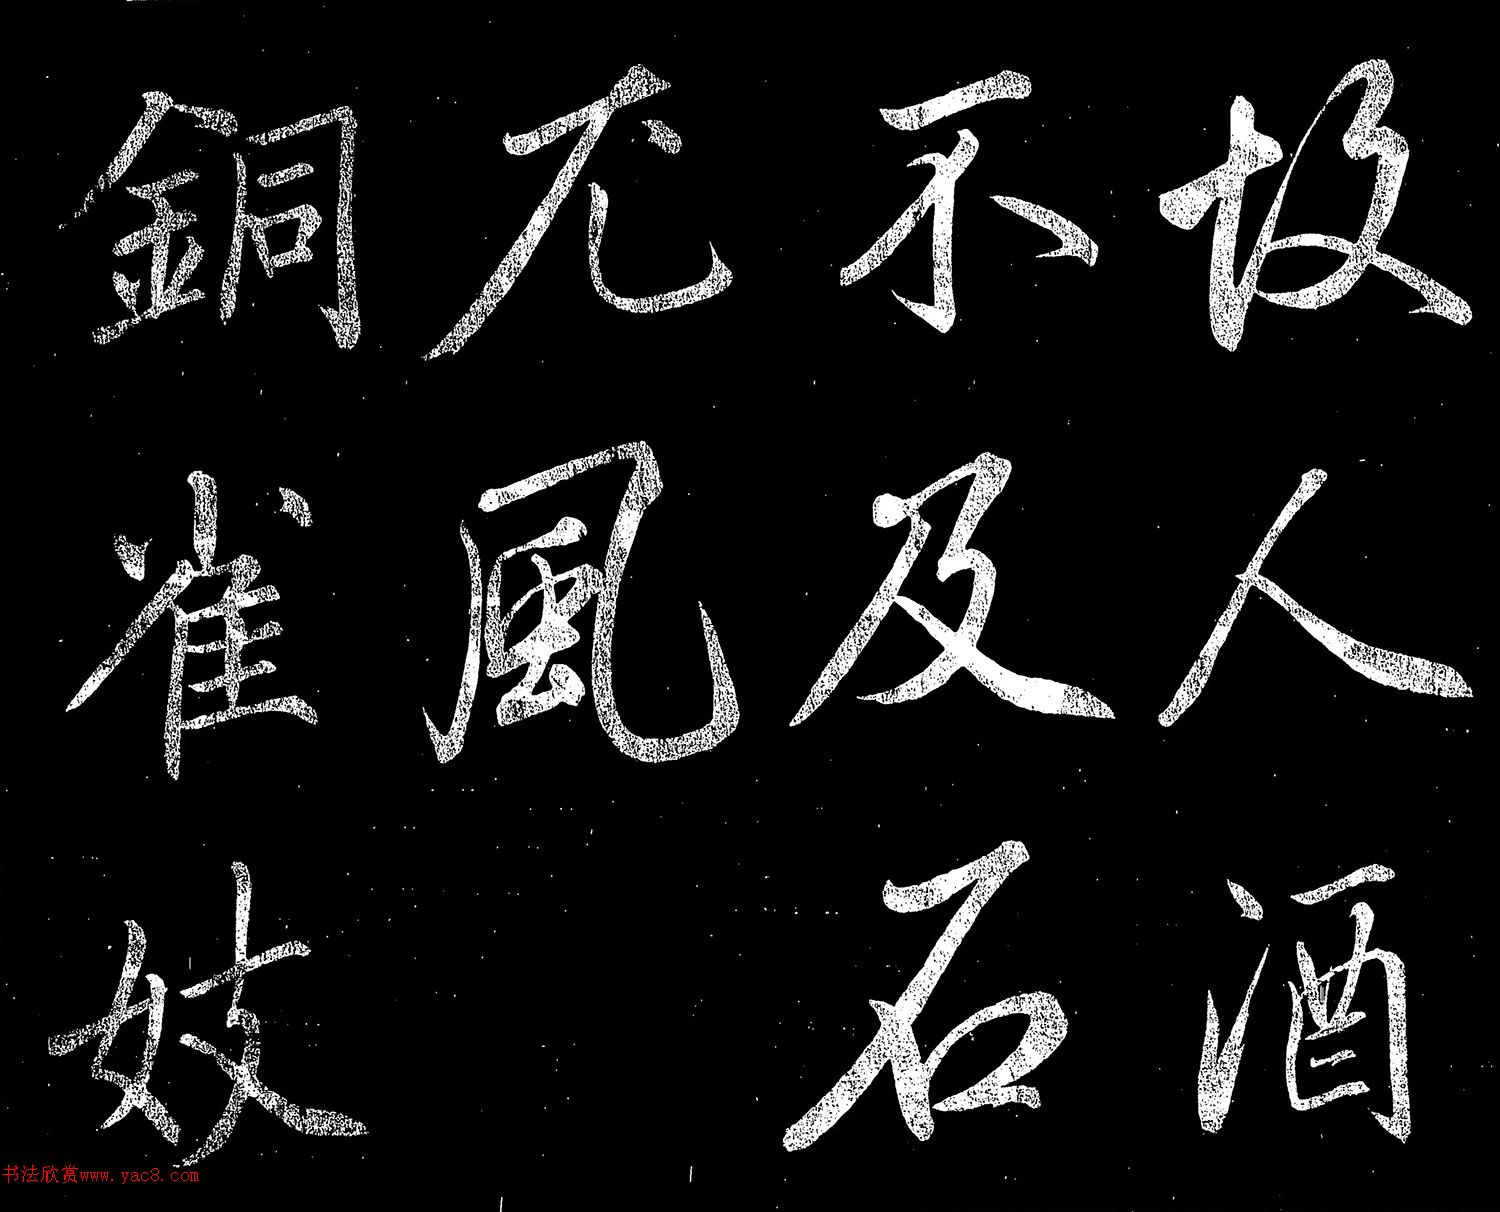 故人酒
不及石
尤風
銅雀妓
书法欣赏www.yac8.com